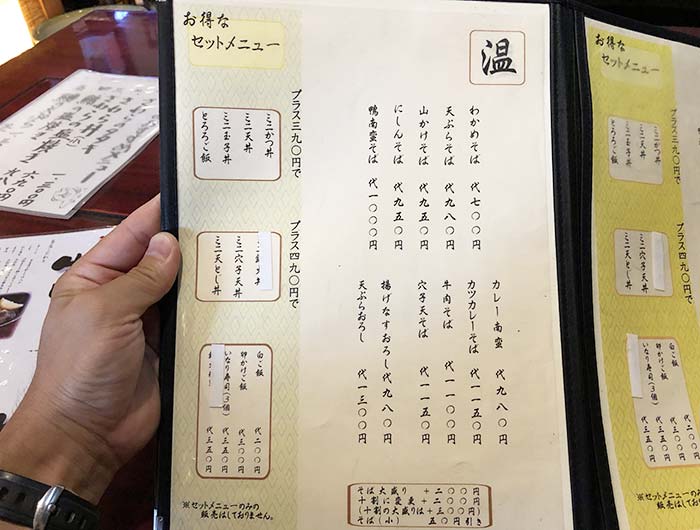 温
わかめそば 代 七〇〇円
天ぷらそば 代 九八〇円
山かけそば 代 九五〇円
にしんそば 代 九五〇円
鴨南蛮そば 代 一〇〇〇円
カレー南蛮 代 九八〇円
カツカレーそば 代 一一〇〇円
牛肉そば 代 一一〇〇円
穴子天そば 代 一一五〇円
揚げなすおろし 代 九八〇円
天ぷらおろし 代 一三〇〇円
そば大盛り +二〇〇円
十割に変更 +二〇〇円
(十割の大盛りは +三〇〇円)
そば(小) 五〇円引き
お得な
セットメニュー
プラス三九〇円で
ミニかつ丼
ミニ天丼
ミニ玉子丼
とろろご飯
プラス四九〇円で
ミニ穴子天丼
ミニ天とじ丼
白ご飯 代 二〇〇円
卵かけご飯 代 三五〇円
いなり寿司(3個) 代 三五〇円
代 三五〇円
※セットメニューのみの
販売はしておりません。
お得な
セットメニュー
プラス三九〇円で
ミニかつ丼
ミニ天丼
ミニ玉子丼
とろろご飯
プラス四九〇円で
ミニ穴子天丼
ミニ天とじ丼
白ご飯
卵かけご飯
いなり寿司(3個)
代 三五〇円
※セットメニューのみの
販売はしておりません。